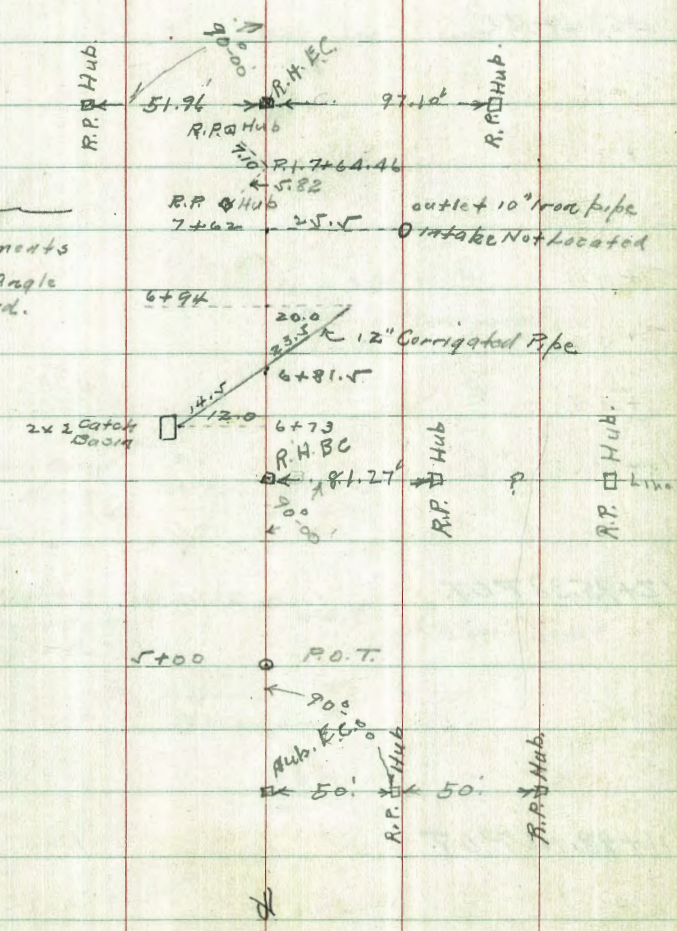 90°-00'
R.P. Hub.
51.96'
R.H. E.C.
97.10'
R.P. Hub.
R.P. Hub
7.10
P.I. 7+64.46
5.82
R.P. Hub
outlet 10" Iron pipe
7+62
25.5
Intake Not Located
ments
Angle
d.
6+94
20.0
23.5
12" Corrigated Pipe
6+81.5
14.5
12.0
2x2 Catch
Basin
6+73
R.H. BC
81.27'
R.P. Hub
?
R.P. Hub.
Line
90°
5+00
P.O.T.
90°
Hub. E.C.
50'
R.P. Hub
50'
R.P. Hub.